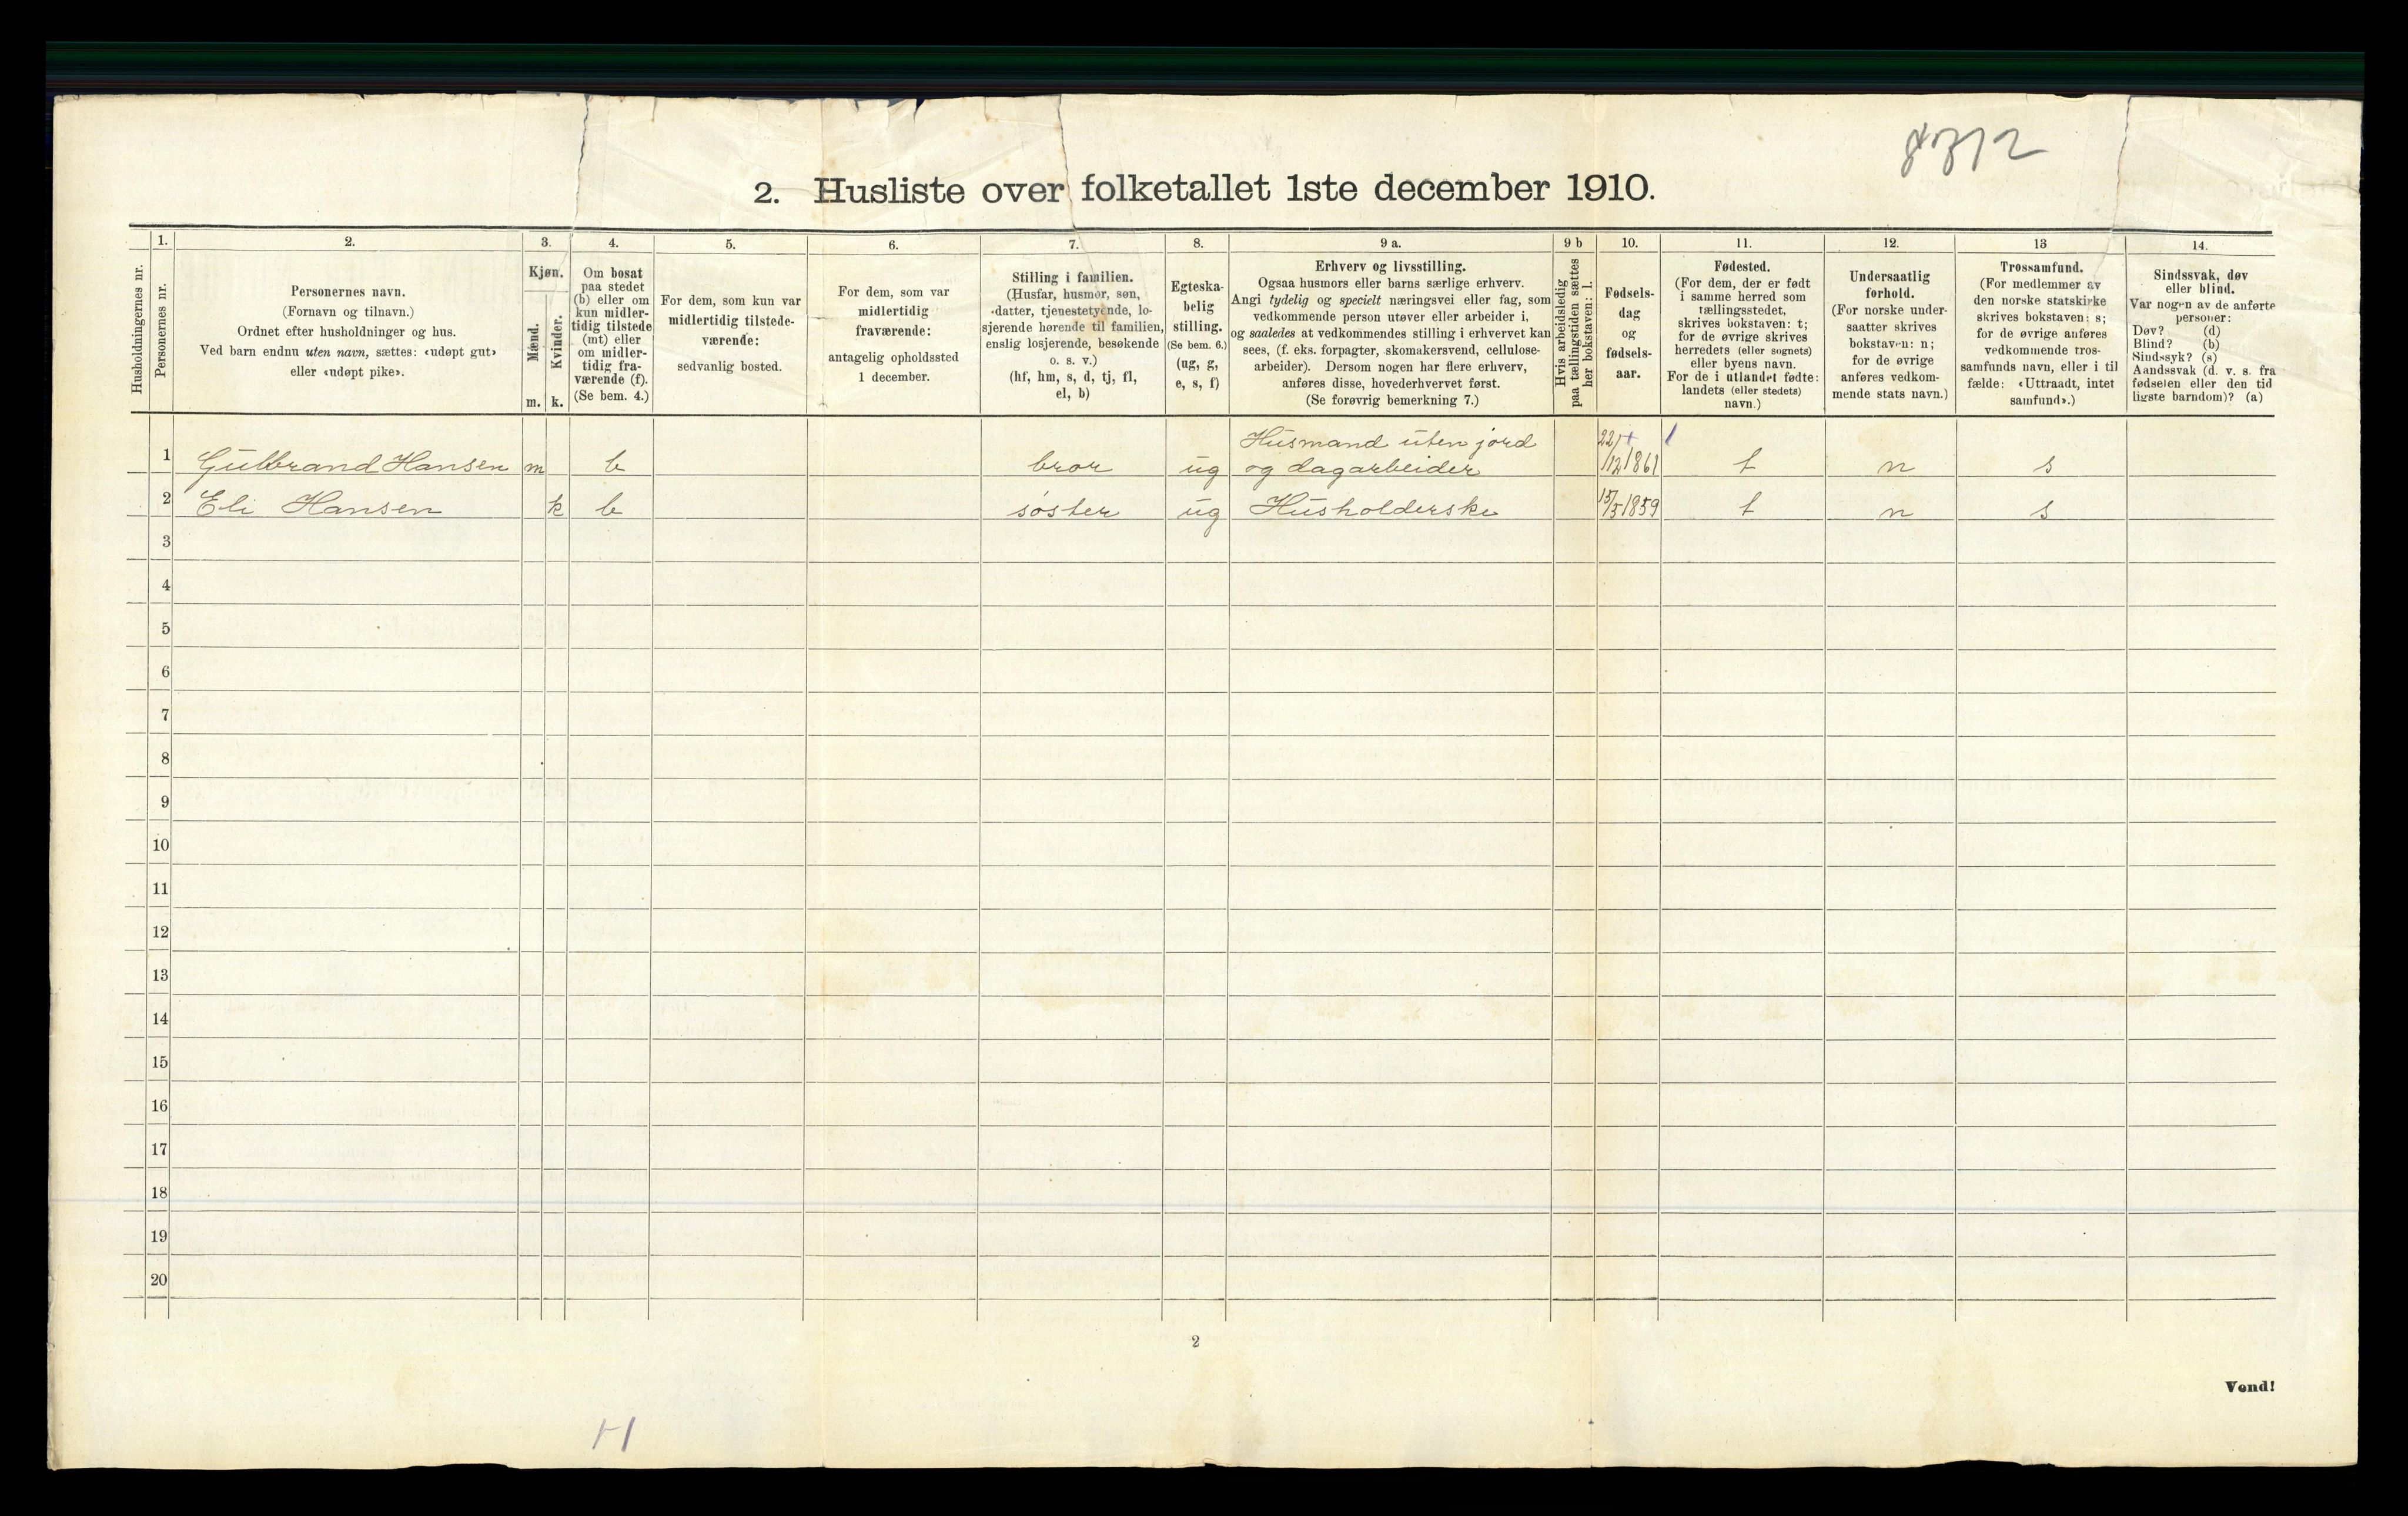 8312
2. Husliste over folketallet 1ste december 1910.
Husholdningernes nr.
1.
Personernes nr.
2.
Personernes navn.
(Fornavn og tilnavn.)
Ordnet efter husholdninger og hus.
Ved barn endnu uten navn, sættes: «udøpt gut»
eller «udøpt pike».
3.
Kjøn.
Mænd.
Kvinder.
m. k.
4.
Om bosat
paa stedet
(b) eller om
kun midler-
tidig tilstede
(mt) eller
om midler-
tidig fra-
værende (f).
(Se bem. 4.)
5.
For dem, som kun var
midlertidig tilstede-
værende:
sedvanlig bosted.
6.
For dem, som var
midlertidig
fraværende:
antagelig opholdssted
1 december.
7.
Stilling i familien.
(Husfar, husmor, søn,
datter, tjenestetyende, lo-
sjerende hørende til familien,
enslig losjerende, besøkende
o. s. v.)
(hf, hm, s, d, tj, fl,
el, b)
8.
Egteska-
belig
stilling.
(Se bem. 6.)
(ug, g,
e, s, f)
9 a.
Erhverv og livsstilling.
Ogsaa husmors eller barns særlige erhverv.
Angi tydelig og specielt næringsvei eller fag, som
vedkommende person utøver eller arbeider i,
og saaledes at vedkommendes stilling i erhvervet kan
sees, (f. eks. forpagter, skomakersvend, cellulose-
arbeider). Dersom nogen har flere erhverv,
anføres disse, hovederhvervet først.
(Se forøvrig bemerkning 7.)
9 b
Hvis arbeidsledig
paa tællingstiden sættes
her bokstaven: l.
10.
Fødsels-
dag
og
fødsels-
aar.
11.
Fødested.
(For dem, der er født
i samme herred som
tællingsstedet,
skrives bokstaven: t;
for de øvrige skrives
herredets (eller sognets)
eller byens navn.
For de i utlandet fødte:
landets (eller stedets)
navn.)
12.
Undersaatlig
forhold.
(For norske under-
saatter skrives
bokstaven: n;
for de øvrige
anføres vedkom-
mende stats navn.)
13
Trossamfund.
(For medlemmer av
den norske statskirke
skrives bokstaven: s;
for de øvrige anføres
vedkommende tros-
samfunds navn, eller i til
fælde: «Uttraadt, intet
samfund».)
14.
Sindssvak, døv
eller blind.
Var nogen av de anførte
personer:
Døv? (d)
Blind? (b)
Sindssyk? (s)
Aandssvak (d. v. s. fra
fødselen eller den tid
ligste barndom)? (a)
1 Gulbrand Hansen m b bror ug Husmand uten jord
og dagarbeider 22/12 1861 t n s
2 Eli Hansen k b søster ug Husholderske 15/5 1859 t n s
3
4
5
6
7
8
9
10
11
12
13
14
15
16
17
18
19
20
2
Vend!